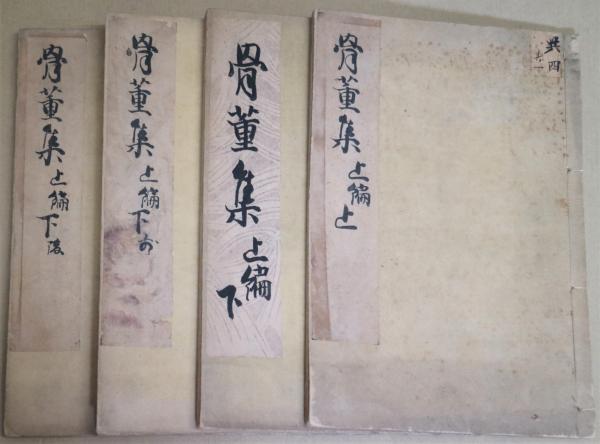 骨董集 上編上
共四
骨董集 上編下
骨董集 上編下前
骨董集 上編下後